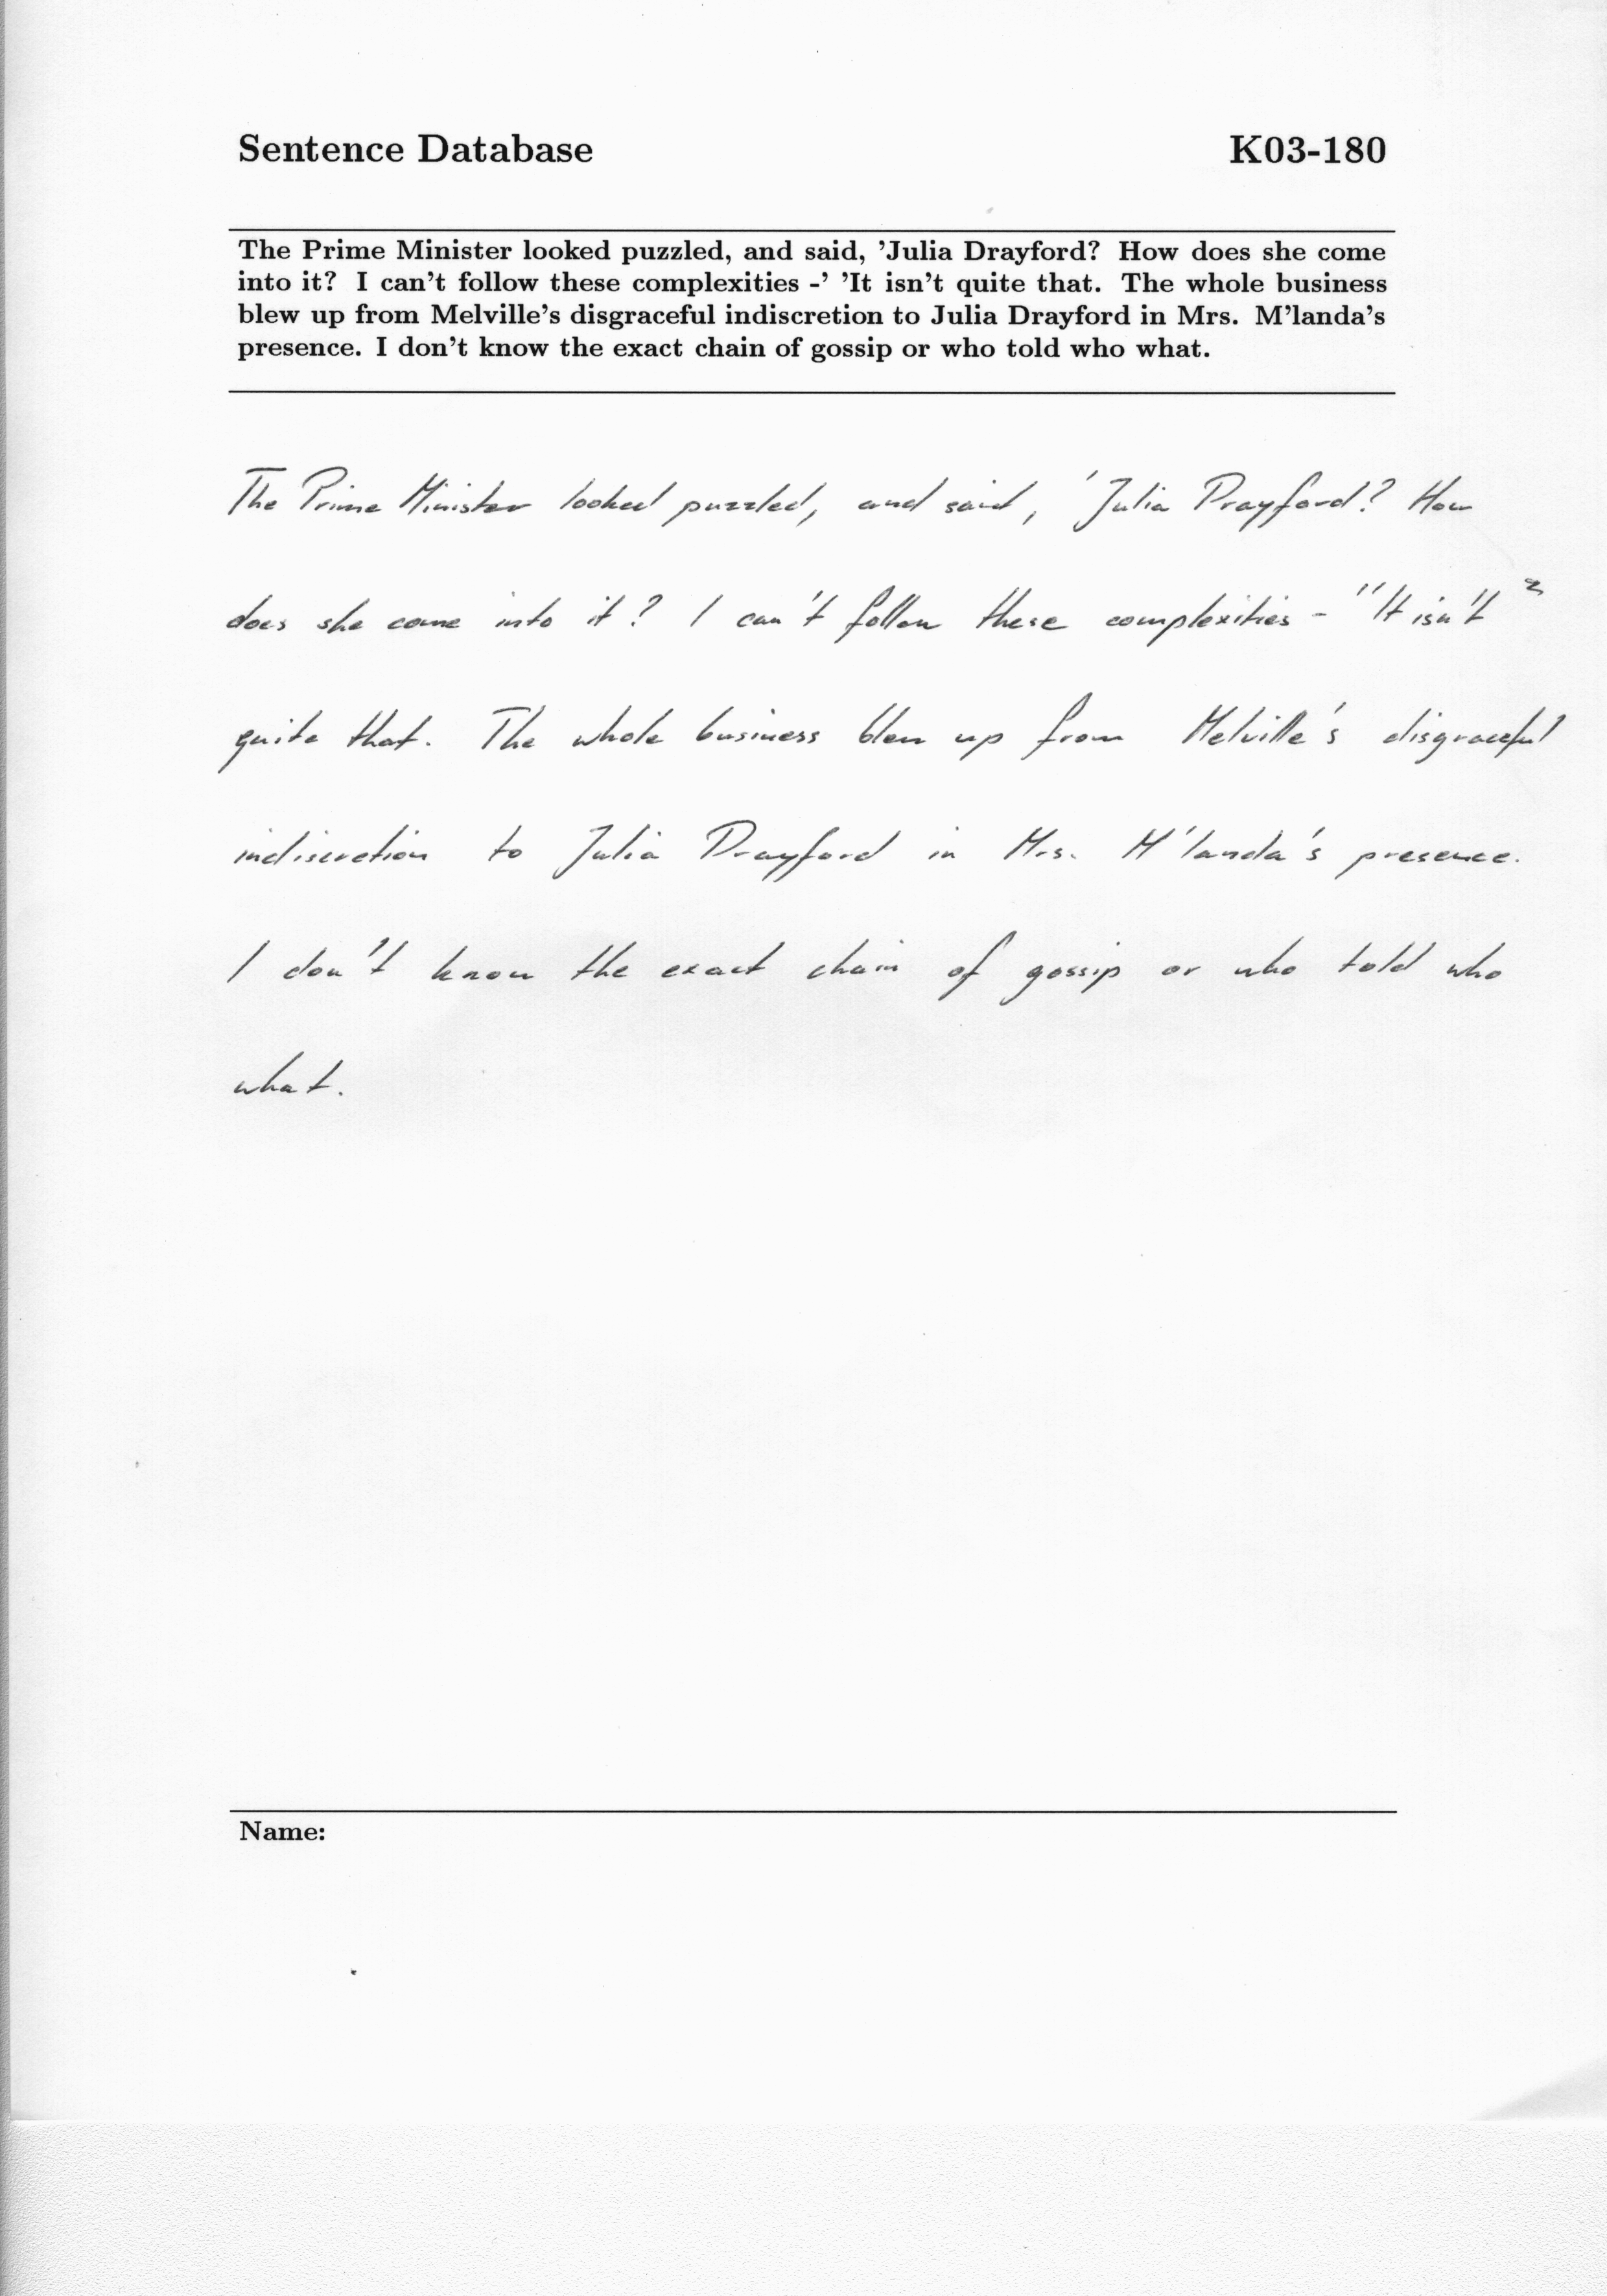 Sentence Database K03-180
The Prime Minister looked puzzled, and said, 'Julia Drayford? How does she come
into it? I can't follow these complexities -' 'It isn't quite that. The whole business
blew up from Melville's disgraceful indiscretion to Julia Drayford in Mrs. M'landa's
presence. I don't know the exact chain of gossip or who told who what.
The Prime Minister looked puzzled, and said, 'Julia Drayford? How
does she come into it? I can't follow these complexities - "It isn't
quite that. The whole business blew up from Melville's disgraceful
indiscretion to Julia Drayford in Mrs. M'landa's presence.
I don't know the exact chain of gossip or who told who
what.
Name: